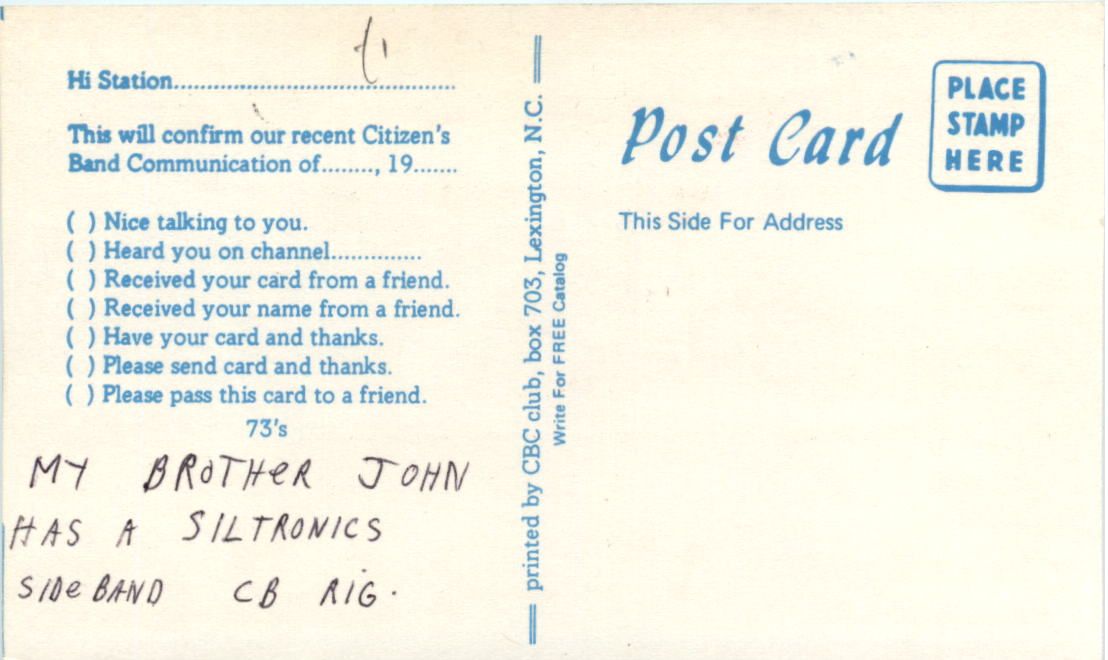 Hi Station..........................................
This will confirm our recent Citizen's
Band Communication of........, 19.......
( ) Nice talking to you.
( ) Heard you on channel..............
( ) Received your card from a friend.
( ) Received your name from a friend.
( ) Have your card and thanks.
( ) Please send card and thanks.
( ) Please pass this card to a friend.
73's
MY BROTHER JOHN
HAS A SILTRONICS
SIDEBAND CB RIG.
printed by CBC club, box 703, Lexington, N.C.
Write For FREE Catalog
Post Card
PLACE
STAMP
HERE
This Side For Address